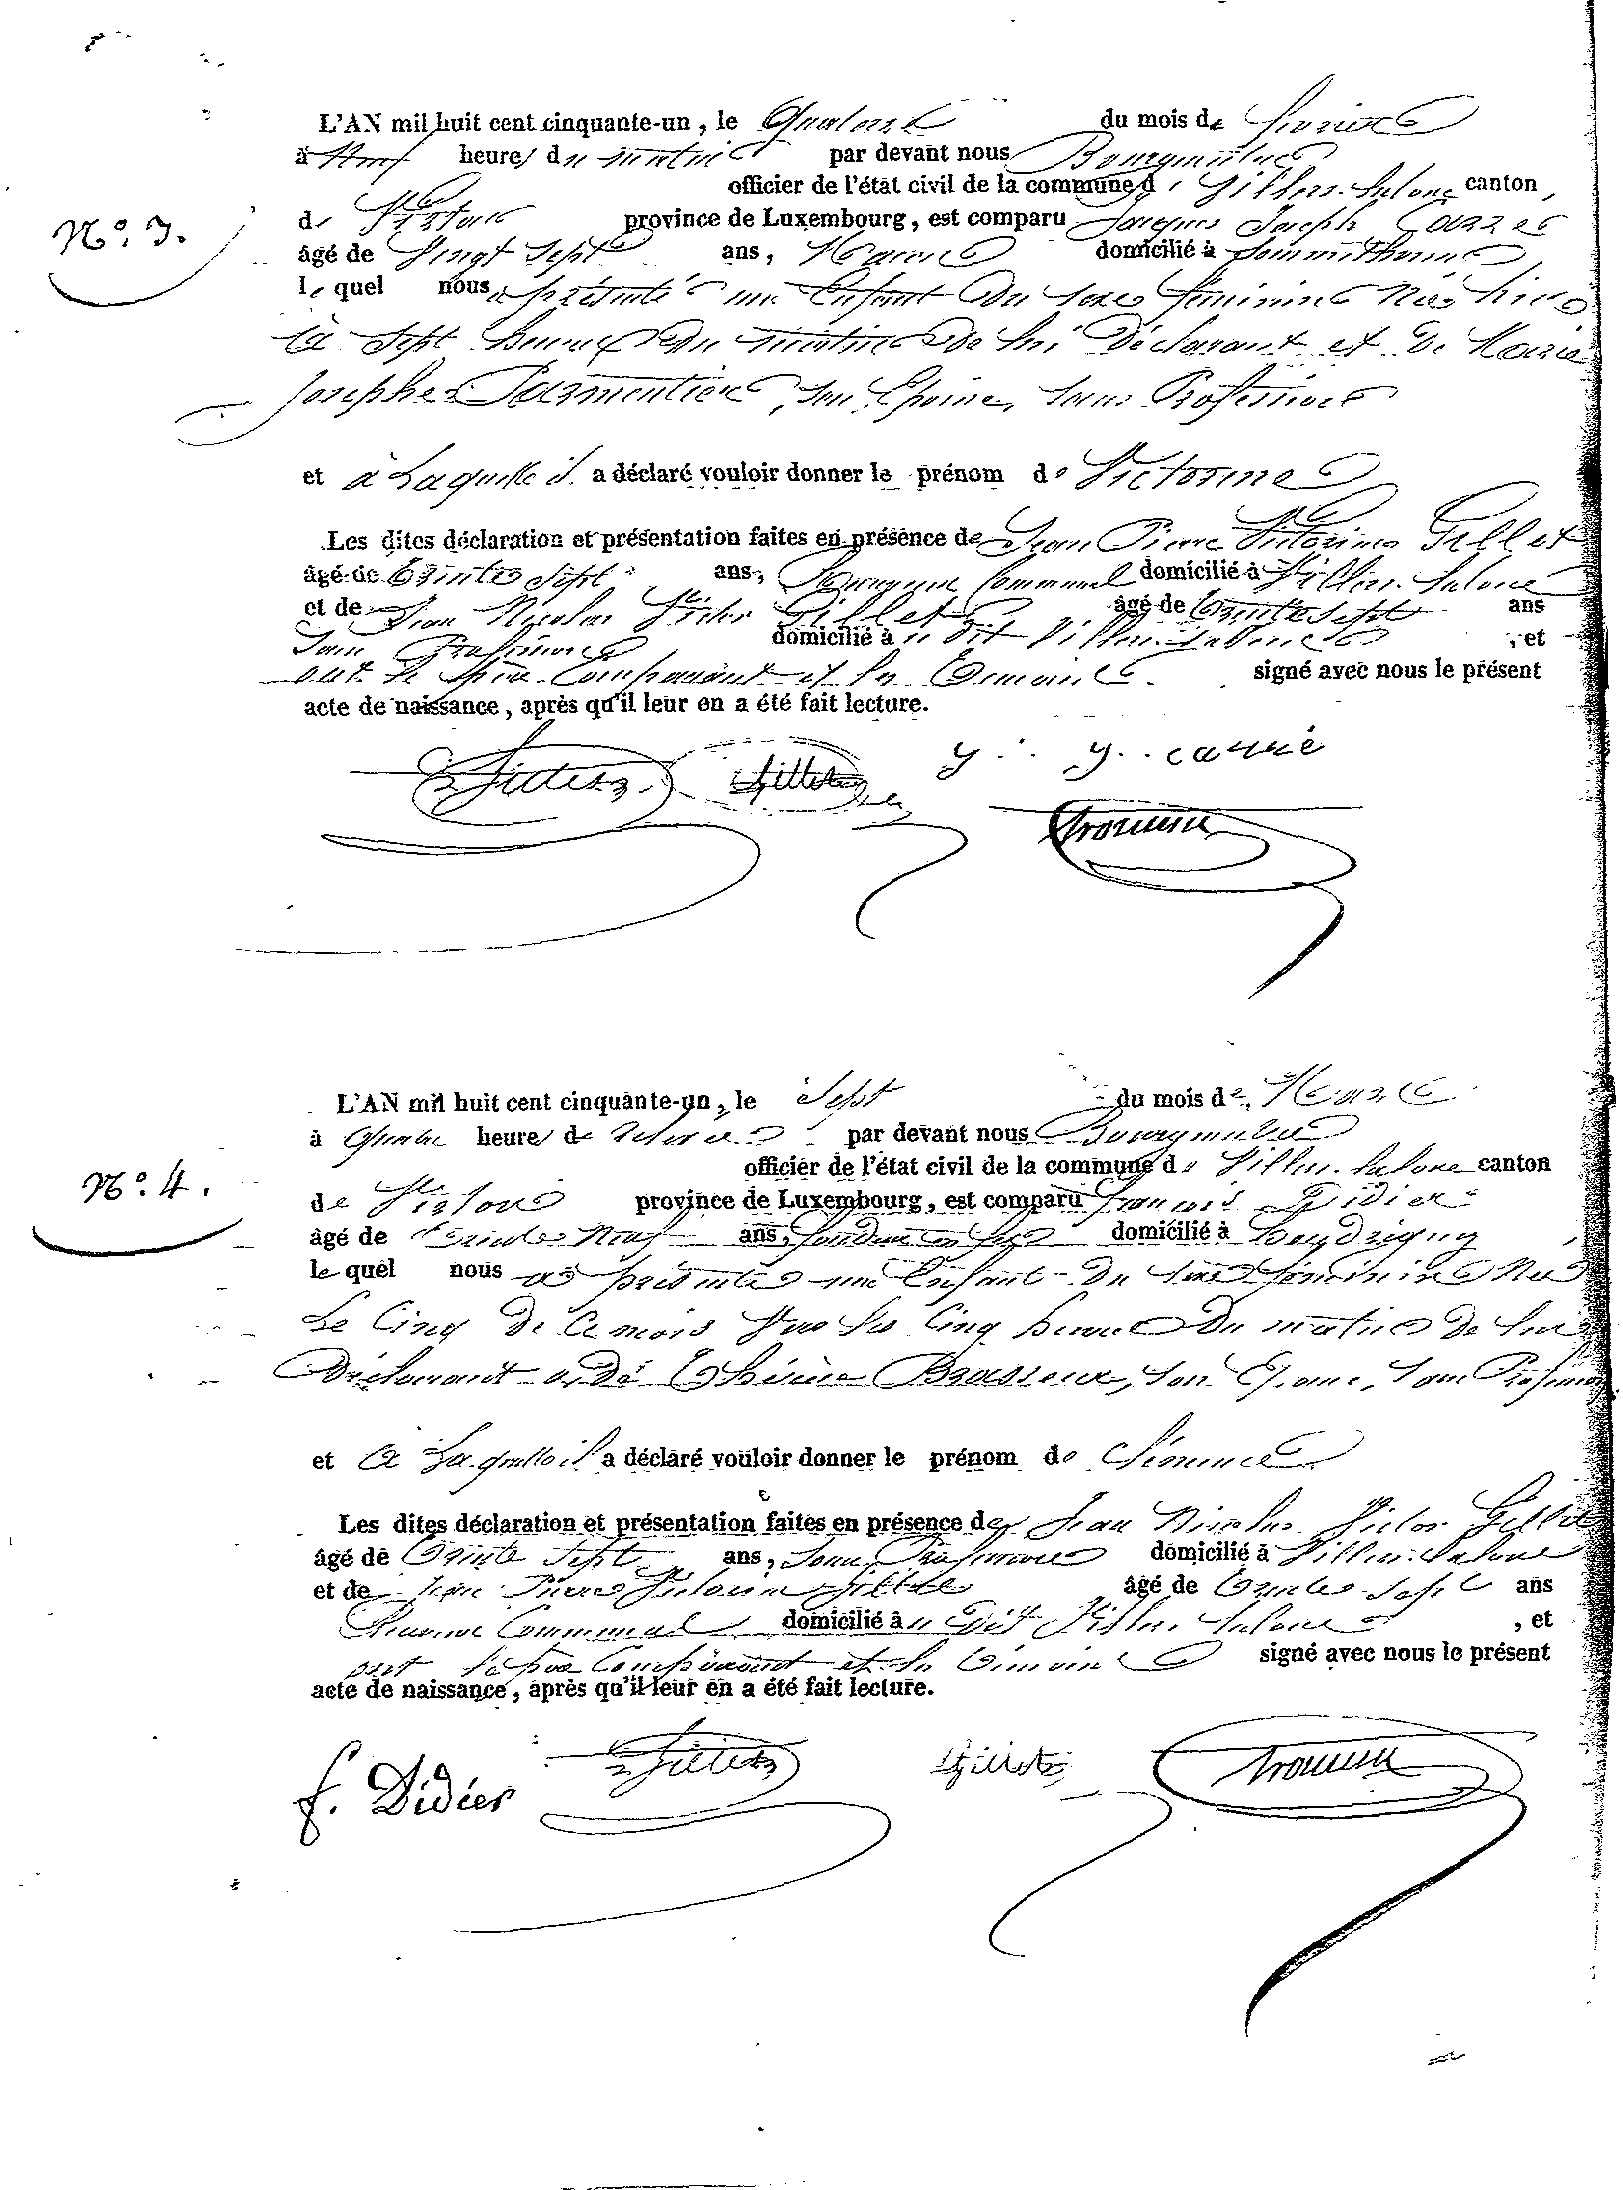 L'AN mil huit cent cinquante-un, le Quatorze du mois de Février
à Neuf heures du matin par devant nous Bourgmestre
officier de l'état civil de la commune de Villers-Laloue canton
N° 3.
de Virton province de Luxembourg, est comparu Jacques Joseph
âgé de Vingt Sept ans, domicilié à Sommethonne
le quel nous a présenté un Enfant du sexe féminin Née hier
à Sept heures du matin de lui Déclarant et de Marie
Josephe Parmentier, son Epouse, sans Profession
et à Laquelle il a déclaré vouloir donner le prénom de Victorine
Les dites déclaration et présentation faites en présence de Jean Pierre Victorin Gillet
âgé de Trente Sept ans, Communal domicilié à Villers-Laloue
et de Jean Nicolas Victor Gillet âgé de Trente Sept ans
Sans Profession domicilié à u dit Villers-Laloue, et
ont le père Comparant et les Témoins signé avec nous le présent
acte de naissance, après qu'il leur en a été fait lecture.
Gillet J. J.
L'AN mil huit cent cinquante-un, le Sept du mois de Mars
à Quatre heures de relevée par devant nous Bourgmestre
officier de l'état civil de la commune de Villers-Laloue canton
N° 4.
de Virton province de Luxembourg, est comparu François Didier
âgé de Trente Neuf ans, domicilié à Houdrigny
le quel nous a présenté un Enfant du sexe féminin Née
Le Cinq de ce mois Vers les Cinq heures du matin de lui
Déclarant et de Brasseur, son Epouse, sans Profession
et à Laquelle il a déclaré vouloir donner le prénom de
Les dites déclaration et présentation faites en présence de Jean Nicolas Victor Gillet
âgé de Trente Sept ans, Sans Profession domicilié à Villers-Laloue
et de Jean Pierre Victorin Gillet âgé de Trente Sept ans
Communal domicilié à u Dit Villers-Laloue, et
ont le père Comparant et les Témoins signé avec nous le présent
acte de naissance, après qu'il leur en a été fait lecture.
f. Didier Gillet